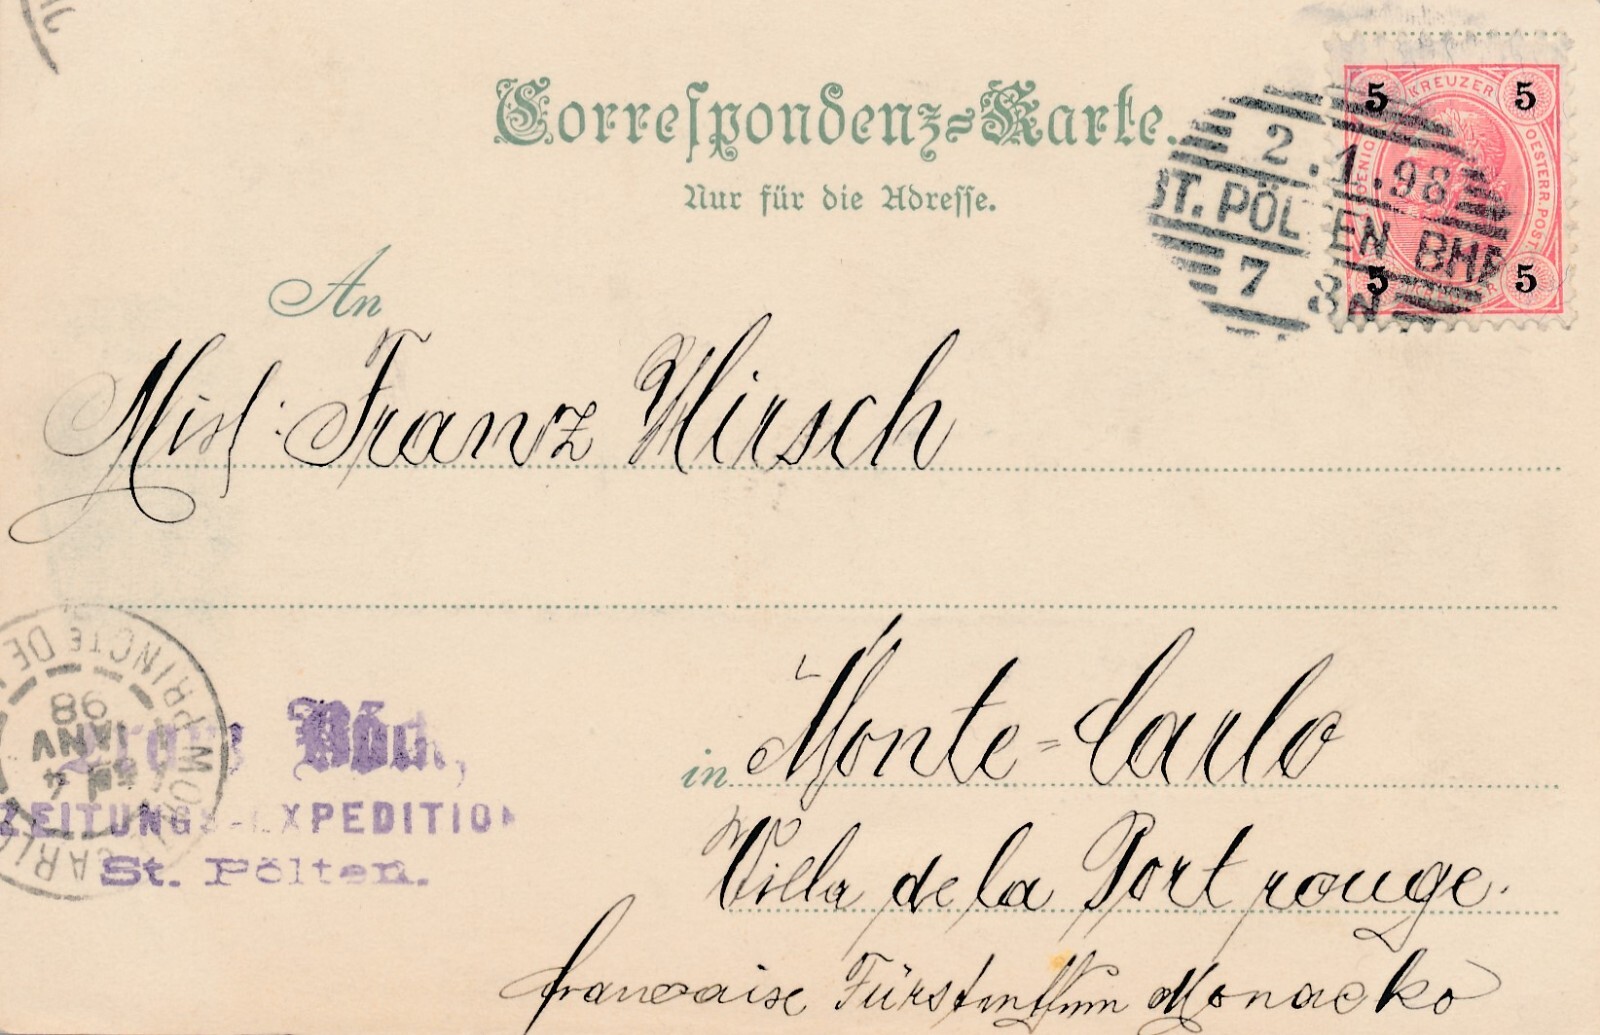 Correspondenz-Karte.
Nur für die Adresse.
5 KREUZER 5
OESTERR. POST.
5 5
2.1.98
ST. PÖLTEN BHF
7 8 N
An
Franz Hirsch
in Monte-Carlo
Villa de la Port rouge.
francaise Fürstenthum Monacko
PRINCTE DE
4 JANV 98
ZEITUNGS-EXPEDITION
St. Pölten.